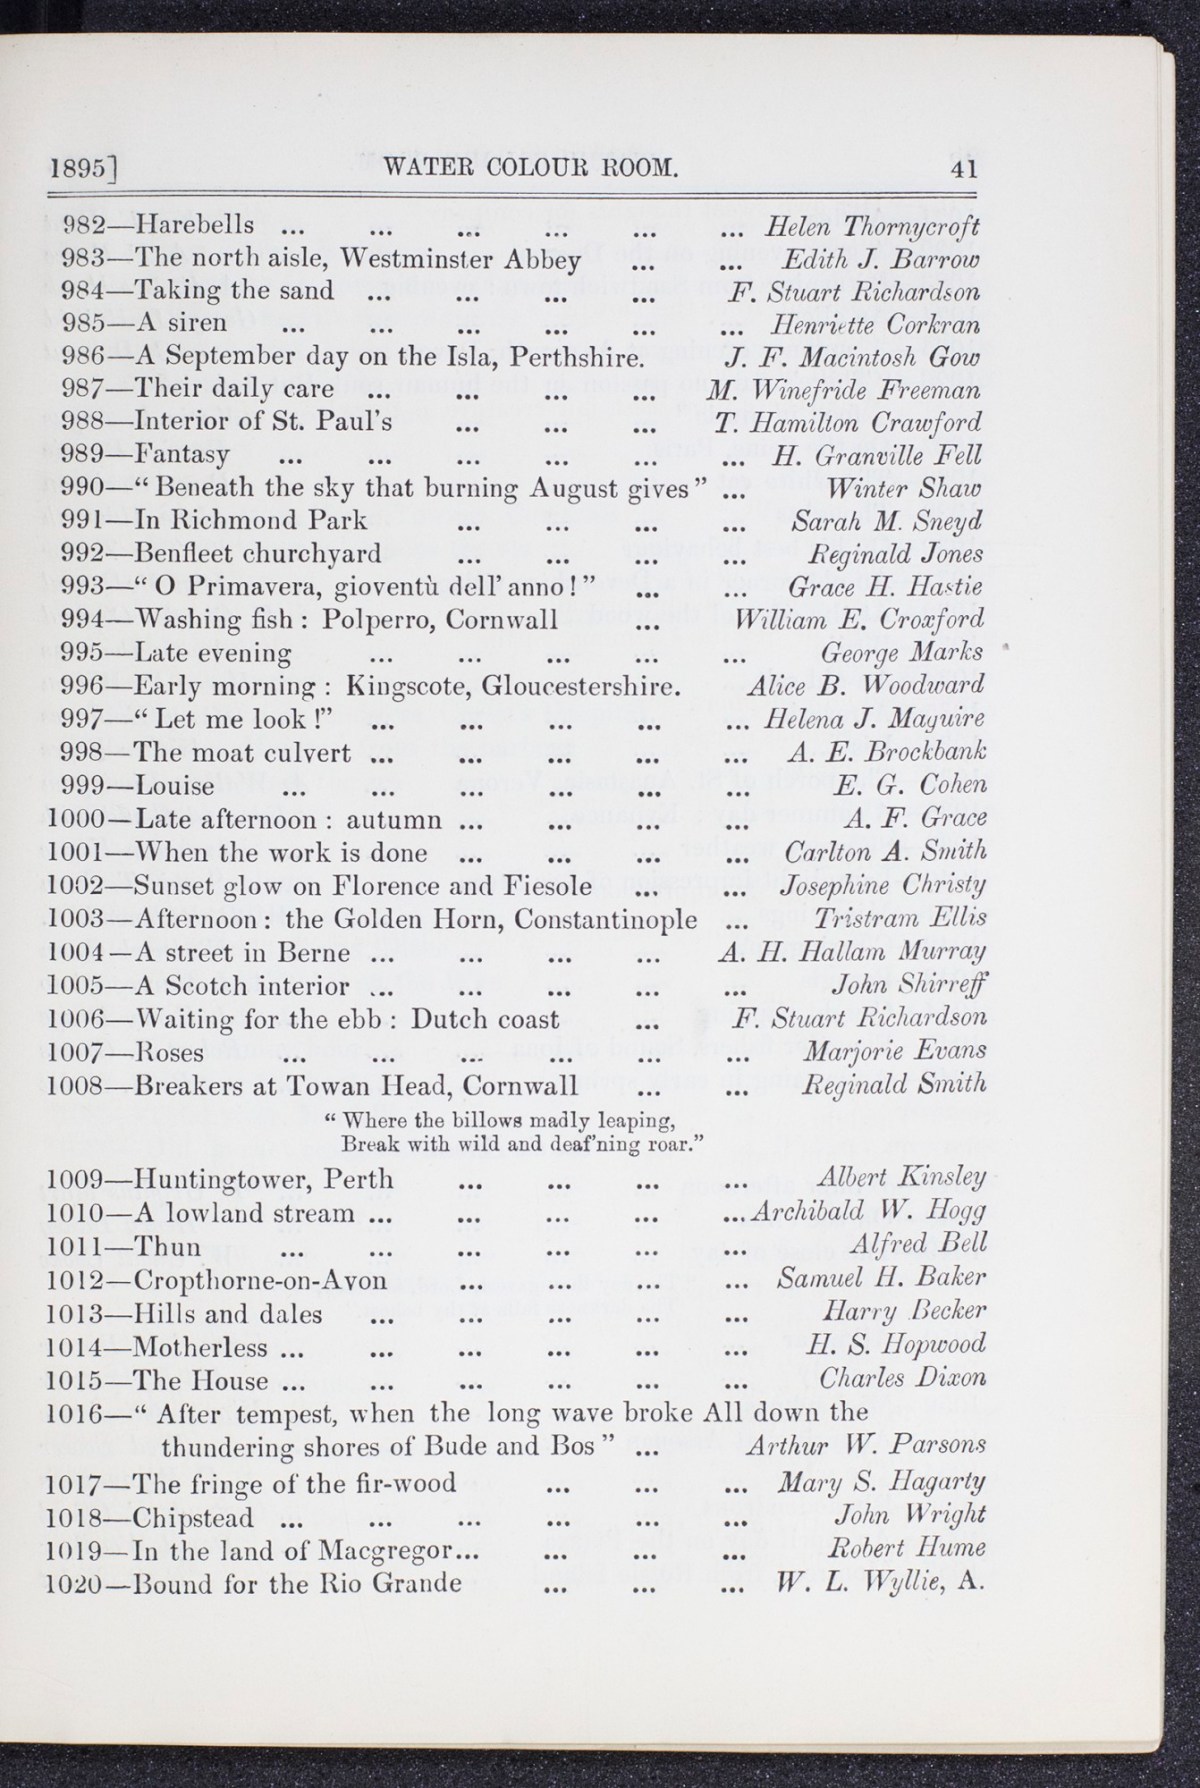 1895] WATER COLOUR ROOM. 41
982—Harebells ... ... ... ... ... ... Helen Thornycroft
983—The north aisle, Westminster Abbey ... ... Edith J. Barrow
984—Taking the sand ... ... ... ... F. Stuart Richardson
985—A siren ... ... ... ... ... ... Henriette Corkran
986—A September day on the Isla, Perthshire. J. F. Macintosh Gow
987—Their daily care ... ... ... ... M. Winefride Freeman
988—Interior of St. Paul's ... ... ... T. Hamilton Crawford
989—Fantasy ... ... ... ... ... ... H. Granville Fell
990—“Beneath the sky that burning August gives” ... Winter Shaw
991—In Richmond Park ... ... ... ... Sarah M. Sneyd
992—Benfleet churchyard ... ... ... ... Reginald Jones
993—“O Primavera, gioventù dell' anno!” ... ... Grace H. Hastie
994—Washing fish : Polperro, Cornwall ... William E. Croxford
995—Late evening ... ... ... ... ... George Marks
996—Early morning : Kingscote, Gloucestershire. Alice B. Woodward
997—“Let me look!” ... ... ... ... ... Helena J. Maguire
998—The moat culvert ... ... ... ... ... A. E. Brockbank
999—Louise ... ... ... ... ... ... E. G. Cohen
1000—Late afternoon : autumn ... ... ... ... A. F. Grace
1001—When the work is done ... ... ... ... Carlton A. Smith
1002—Sunset glow on Florence and Fiesole ... ... Josephine Christy
1003—Afternoon : the Golden Horn, Constantinople ... Tristram Ellis
1004—A street in Berne ... ... ... ... A. H. Hallam Murray
1005—A Scotch interior ... ... ... ... ... John Shirreff
1006—Waiting for the ebb : Dutch coast ... F. Stuart Richardson
1007—Roses ... ... ... ... ... ... Marjorie Evans
1008—Breakers at Towan Head, Cornwall ... ... Reginald Smith
“Where the billows madly leaping,
Break with wild and deaf'ning roar.”
1009—Huntingtower, Perth ... ... ... ... Albert Kinsley
1010—A lowland stream ... ... ... ... ... Archibald W. Hogg
1011—Thun ... ... ... ... ... ... Alfred Bell
1012—Cropthorne-on-Avon ... ... ... ... Samuel H. Baker
1013—Hills and dales ... ... ... ... ... Harry Becker
1014—Motherless ... ... ... ... ... ... H. S. Hopwood
1015—The House ... ... ... ... ... ... Charles Dixon
1016—“After tempest, when the long wave broke All down the
thundering shores of Bude and Bos” ... Arthur W. Parsons
1017—The fringe of the fir-wood ... ... ... Mary S. Hagarty
1018—Chipstead ... ... ... ... ... ... John Wright
1019—In the land of Macgregor... ... ... ... Robert Hume
1020—Bound for the Rio Grande ... ... ... W. L. Wyllie, A.